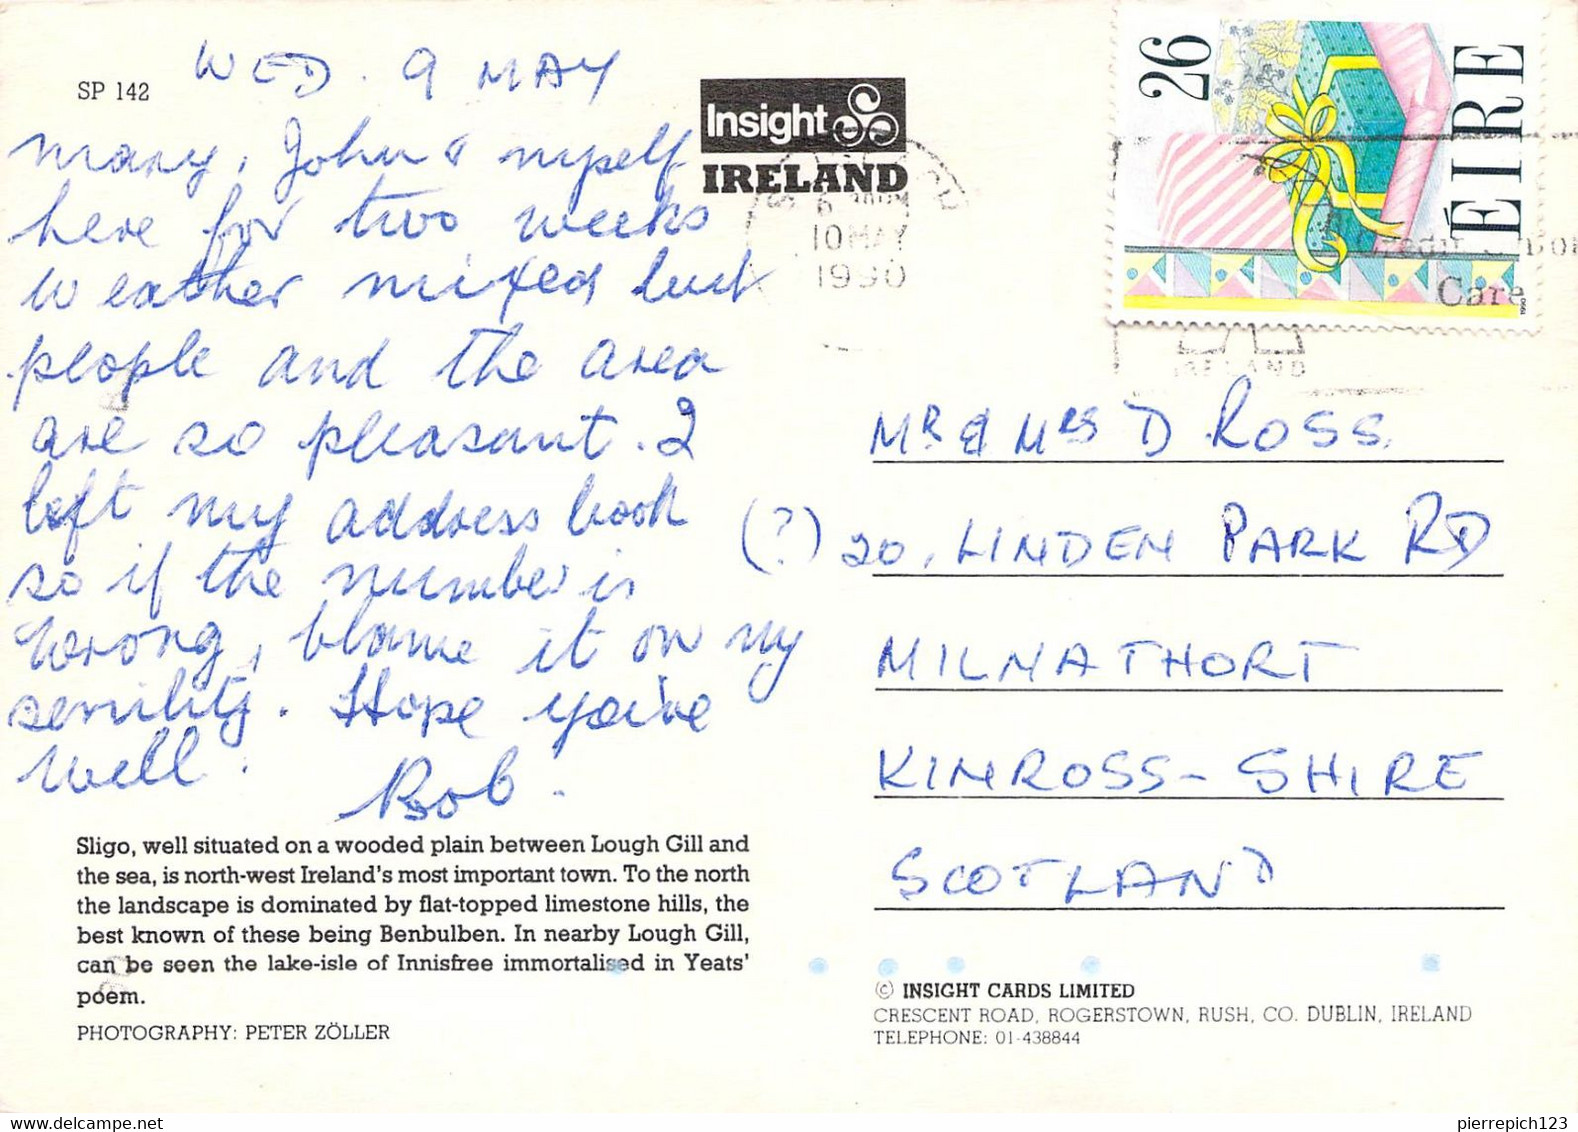 SP 142
WED. 9 MAY
Mary, John & myself
here for two weeks
weather mixed but
people and the area
are so pleasant. I
left my address book
so if the number is
wrong, blame it on my
senility. Hope you're
well.
Bob.
Sligo, well situated on a wooded plain between Lough Gill and
the sea, is north-west Ireland's most important town. To the north
the landscape is dominated by flat-topped limestone hills, the
best known of these being Benbulben. In nearby Lough Gill,
can be seen the lake-isle of Innisfree immortalised in Yeats'
poem.
PHOTOGRAPHY: PETER ZÖLLER
Insight
IRELAND
10 MAY
1990
26
ÉIRE
1990
Credit Union
Care
IRELAND
MR & MRS D ROSS.
(?) 20, LINDEN PARK RD
MILNATHORT
KINROSS-SHIRE
SCOTLAND
© INSIGHT CARDS LIMITED
CRESCENT ROAD, ROGERSTOWN, RUSH, CO. DUBLIN, IRELAND
TELEPHONE: 01-438844
delcampe.net
pierrepich123